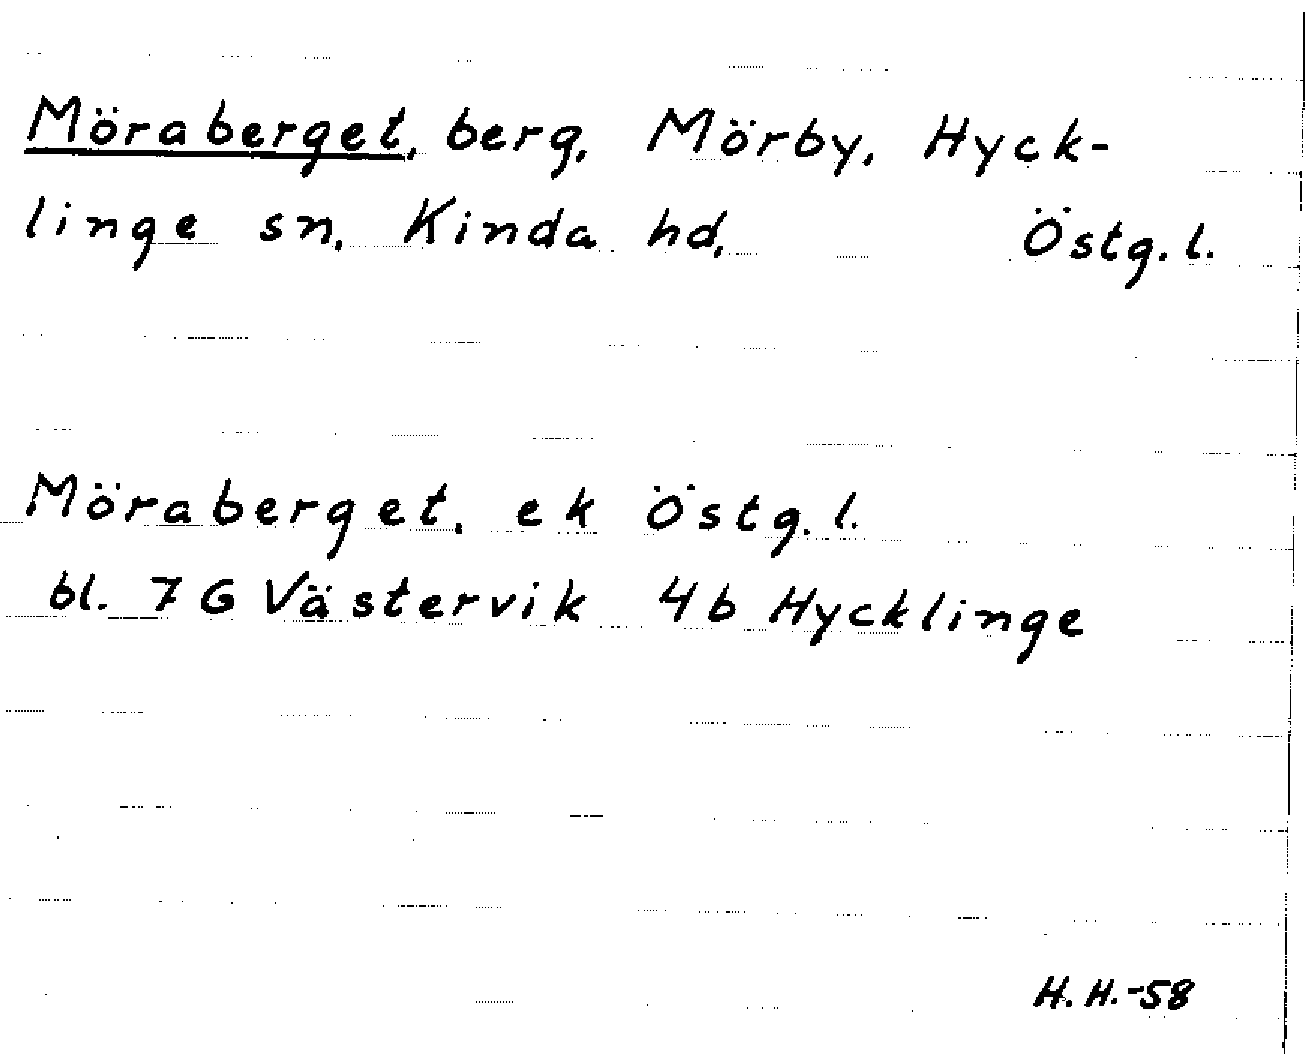 Möraberget, berg, Mörby, Hyck-
linge sn, Kinda hd, Östg. l.
Möraberget, ek Östg. l.
bl. 7 G Västervik 4b Hycklinge
H. H. -58